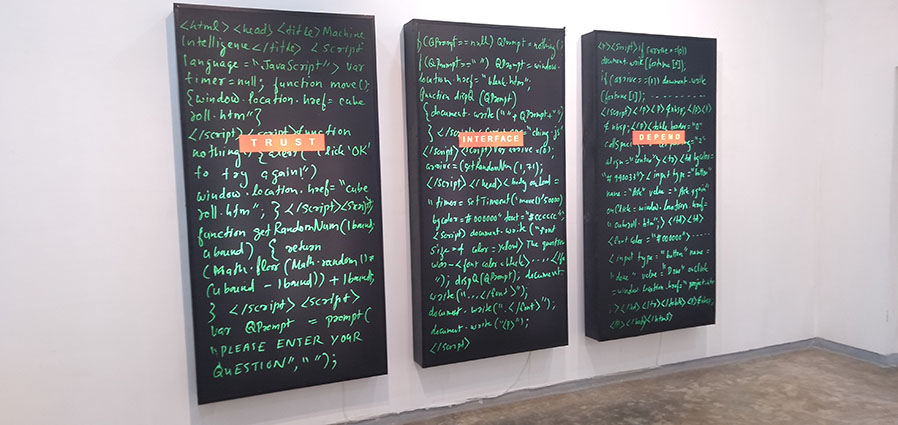 <html> <head> <title> Machine
Intelligence </title> <script
language = "JavaScript"> var
timer=null; function move()
{window.location.href= cube
roll.htm"}
</script> <script>function
nothing
TRUST
"click 'OK'
to try again!")
window.location.href="cube
roll.htm"; } </script><script>
function getRandomNum(lbound,
ubound) { return
(Math.floor(Math.random()*
(ubound - lbound)) + lbound);
} </script> <script>
var QPrompt = prompt(
"PLEASE ENTER YOUR
QUESTION", " ");
if (QPrompt==null) QPrompt=nothing();
if (QPrompt==" ") QPrompt=window.
location.href= "blank.htm";
function dispQ (QPrompt)
{ document.write(""+ QPrompt+"")
} </script>
INTERFACE
"ching.js"
</script>
=(getRandomNum(1,71);
</script> </head> <body onload=
"timer=setTimeout('move()'50000)
bgcolor=#000000" text="#cccccc"
<script> document.write ("<font
size=4 color=yellow> The question
was- <font color=black> .... </fon
"); dispQ(QPrompt); document.
write("...</font>");
document.write("..</font>");
document.write("<p>");
</script>
<p><script>if
document.write (fortune [0]);
document.write
(fortune
</script>
DEPEND
<table border="0"
align="center"> <tr> <td bgcolor=
"#990033"> <input type="button"
name = "Ask" value = "Ask again"
onClick= window.location.href=
roll.htm"; </td> <td>
<font color="#000000">
<input type="button" name=
"Done" value="Done" onclick
=window.location.href=
</tr></table>
</html>